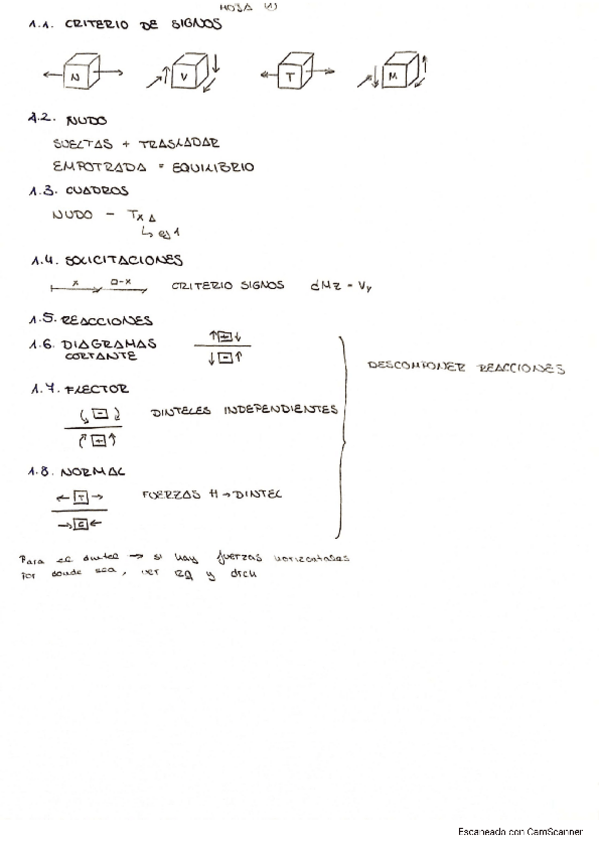 HOJA (1)
1.1. CRITERIO DE SIGNOS
N V T M
1.2. NUDO
SUELTAS + TRASLADAR
EMPOTRADA = EQUILIBRIO
1.3. CUADROS
NUDO - Tx Δ
↳ ej 1
1.4. SOLICITACIONES
x a-x CRITERIO SIGNOS dMz = Vy
1.5. REACCIONES
1.6. DIAGRAMAS CORTANTE
↑ + ↓
↓ - ↑
DESCOMPONER REACCIONES
1.7. FLECTOR
-
+
DINTELES INDEPENDIENTES
1.8. NORMAL
← T →
→ C ←
FUERZAS H → DINTEL
Para el dintel → si hay fuerzas horizontales
por donde sea, ver izq y drch
Escaneado con CamScanner